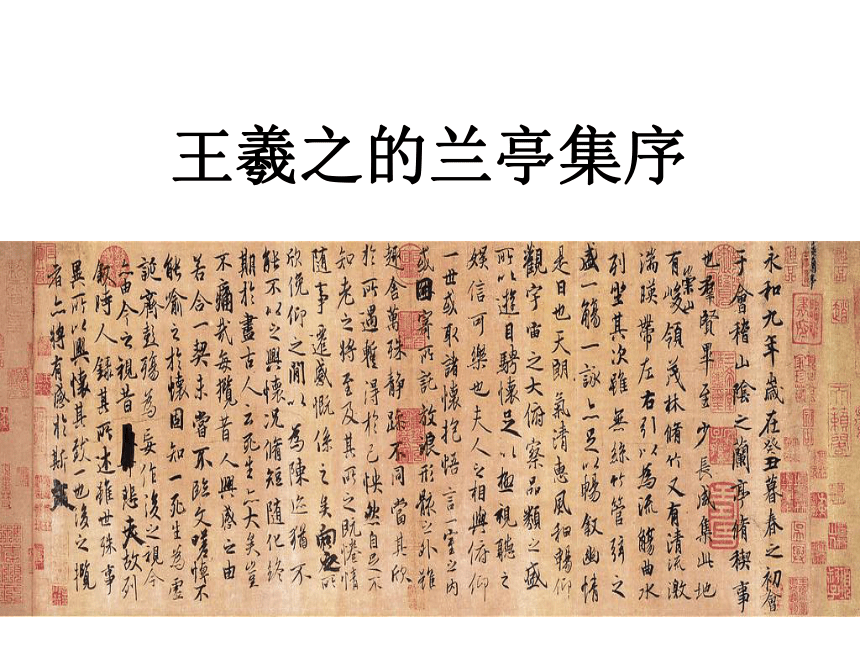 王羲之的兰亭集序
永和九年歲在癸丑暮春之初會
于會稽山陰之蘭亭脩稧事
也羣賢畢至少長咸集此地
有崇山峻領茂林脩竹又有清流激
湍暎帶左右引以為流觴曲水
列坐其次雖無絲竹管弦之
盛一觴一詠亦足以暢敘幽情
是日也天朗氣清惠風和暢仰
觀宇宙之大俯察品類之盛
所以遊目騁懷足以極視聽之
娛信可樂也夫人之相與俯仰
一世或取諸懷抱悟言一室之內
或因寄所託放浪形骸之外雖
趣舍萬殊靜躁不同當其欣
於所遇蹔得於己怏然自足不
知老之將至及其所之既惓情
隨事遷感慨係之矣向之所
欣俛仰之閒以為陳迹猶不
能不以之興懷況脩短隨化終
期於盡古人云死生亦大矣豈
不痛哉每攬昔人興感之由
若合一契未嘗不臨文嗟悼不
能喻之於懷固知一死生為虛
誕齊彭殤為妄作後之視今
亦由今之視昔悲夫故列
敘時人錄其所述雖世殊事
異所以興懷其致一也後之攬
者亦將有感於斯文